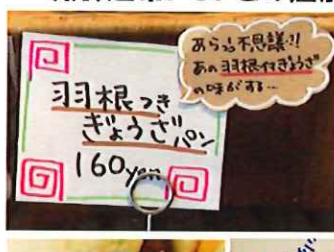 あらら不思議!!
あの羽根付ぎょうざ
の味がする…
羽根つき
ぎょうざパン
160yen
が